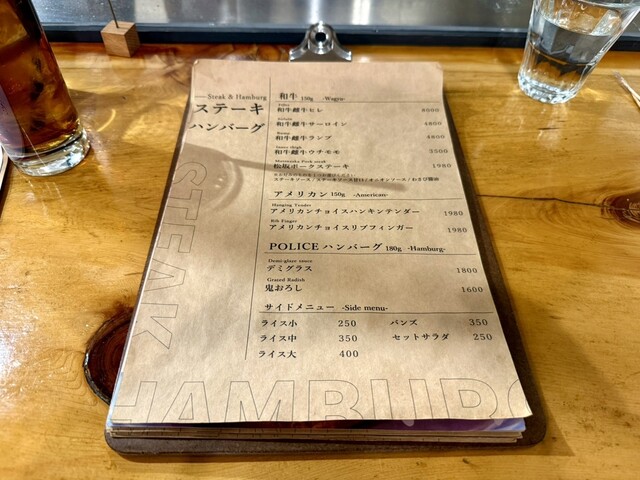 Steak & Hamburg
ステーキ
ハンバーグ
STEAK
HAMBURG
和牛 150g -Wagyu-
和牛雌牛ヒレ 8000
和牛雌牛サーロイン 4800
Rump
和牛雌牛ランプ 4800
和牛雌牛ウチモモ 3500
Matsusaka Pork steak
松坂ポークステーキ 1980
アメリカン 150g -American-
Hanging Tender
アメリカンチョイスハンキンテンダー 1980
Rib Finger
アメリカンチョイスリブフィンガー 1980
POLICE ハンバーグ 180g -Hamburg-
Demi-glace sauce
デミグラス 1800
Grated Radish
鬼おろし 1600
サイドメニュー -Side menu-
ライス小 250 バンズ 350
ライス中 350 セットサラダ 250
ライス大 400